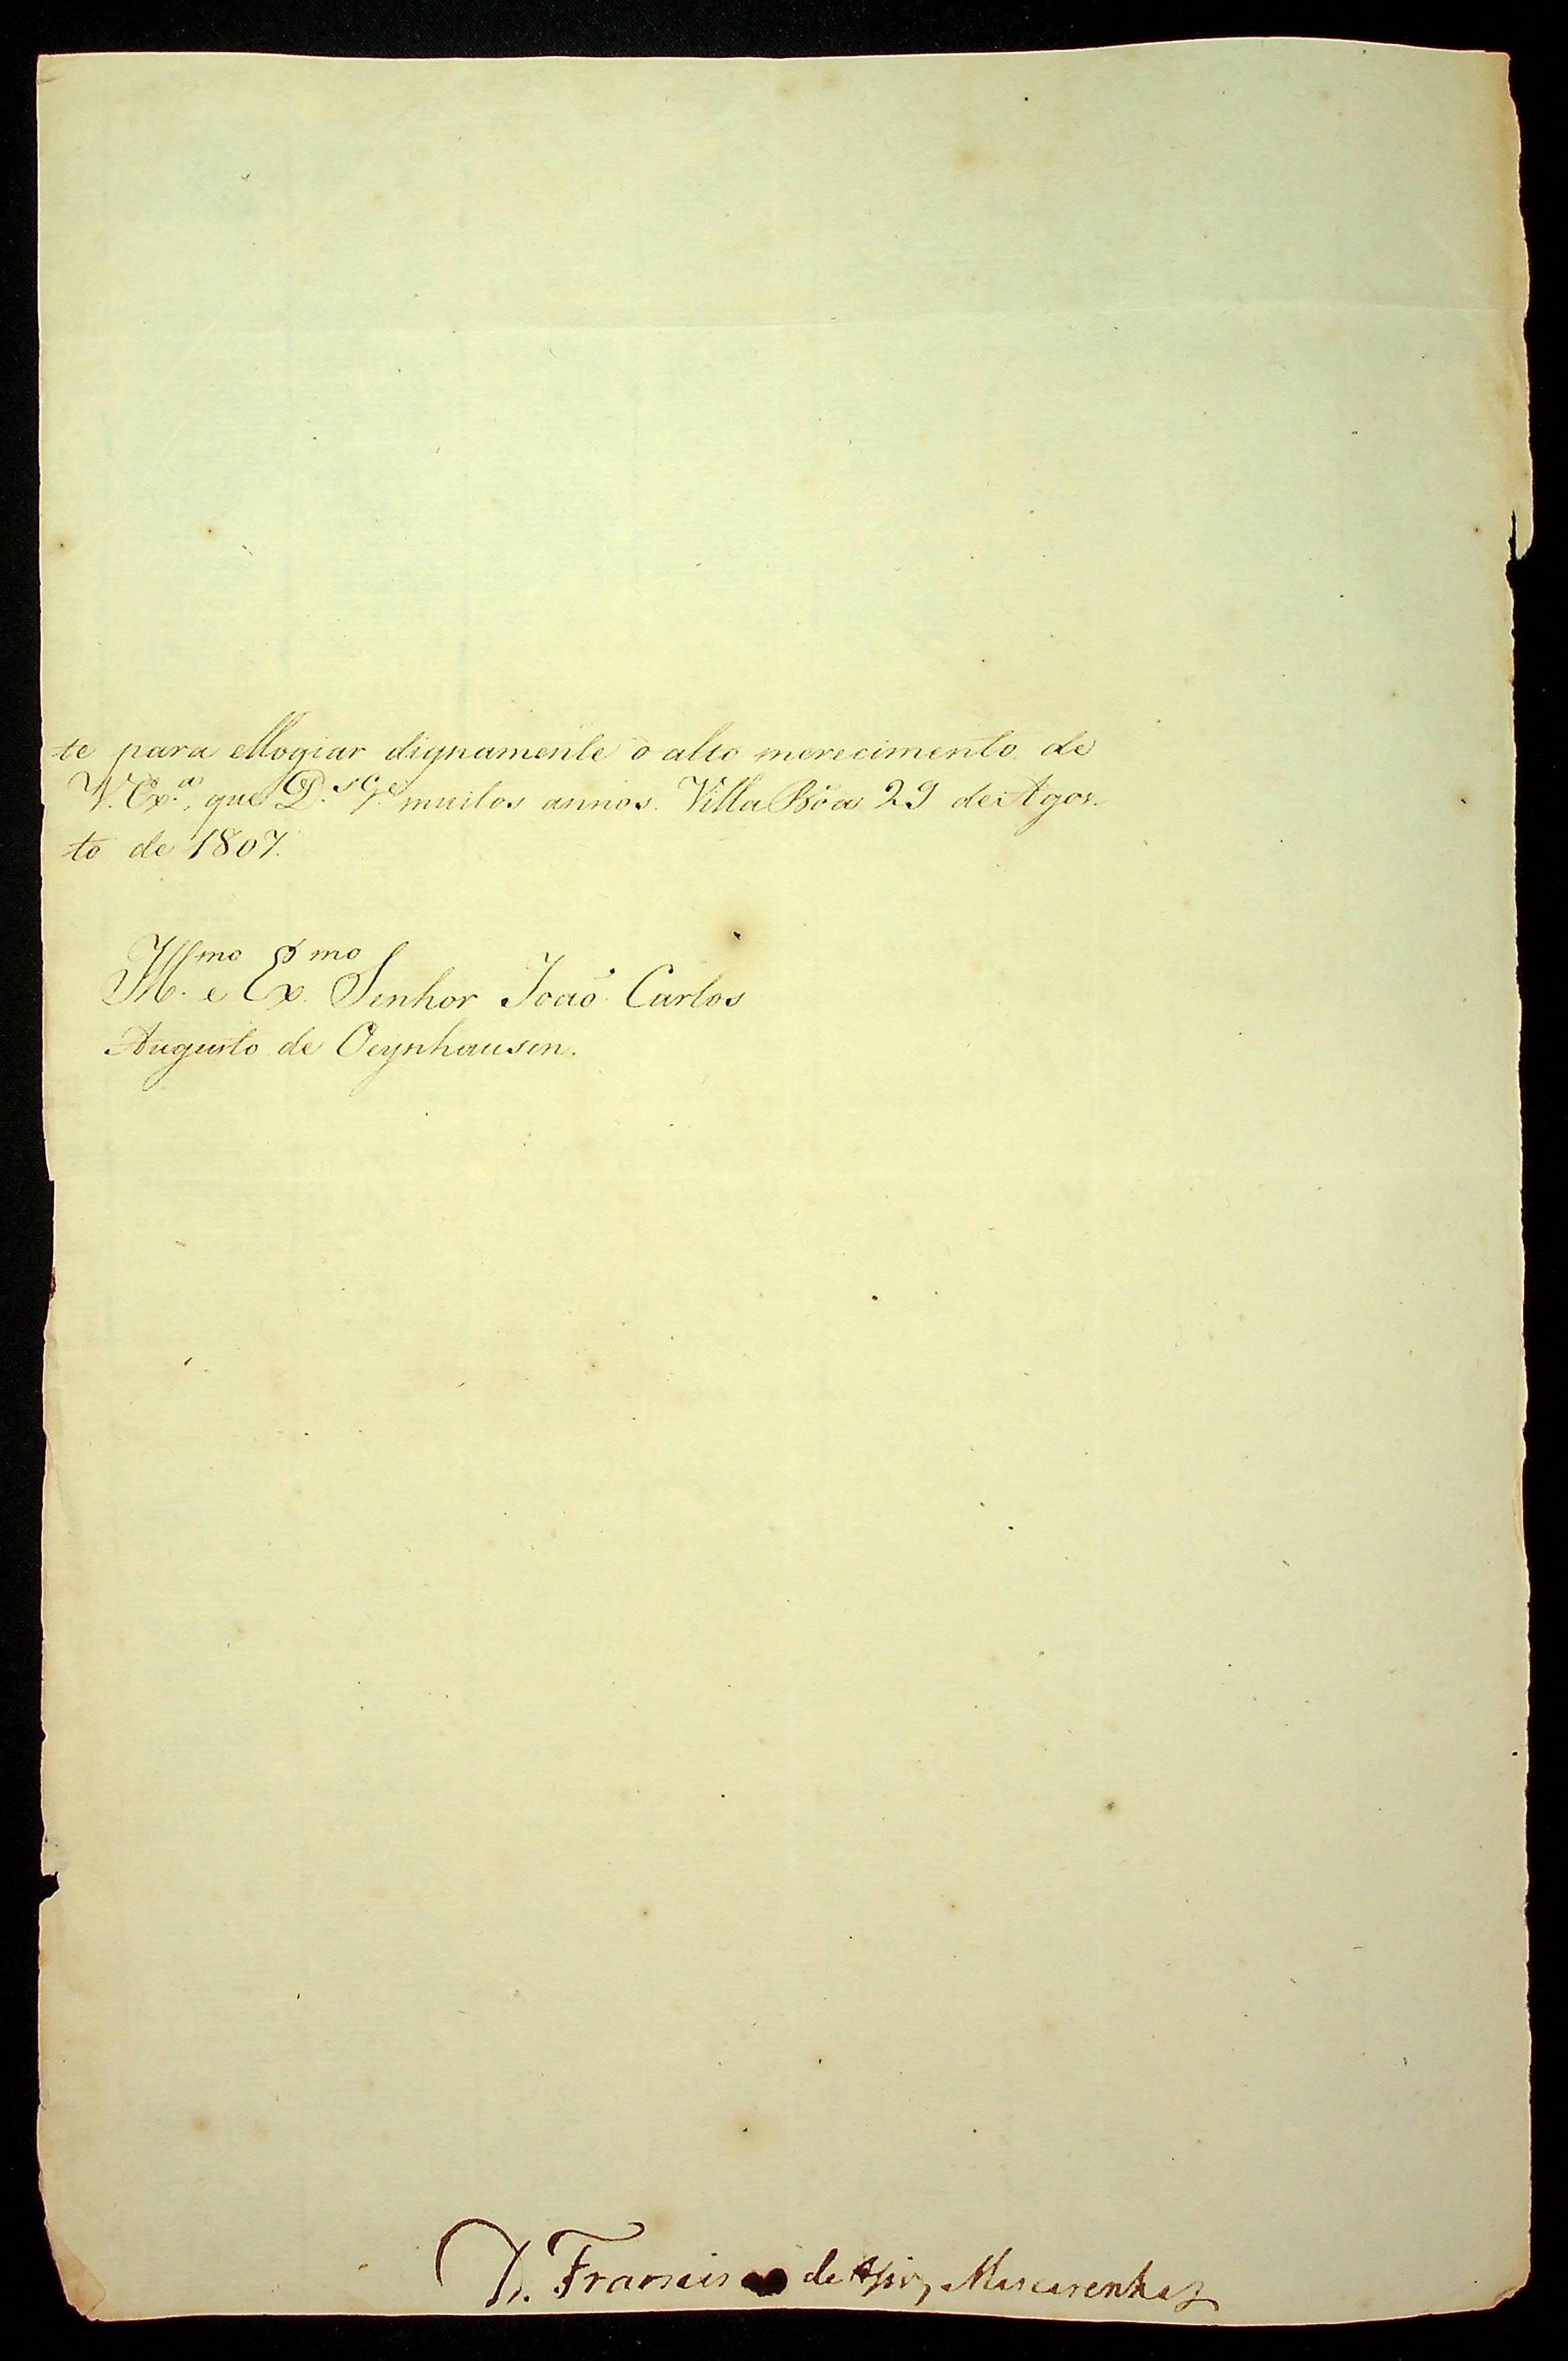 te para ellogiar dignamente o alto merecimento de
V. Ex.ª, que D.s G.e muitos annos. Villa Bôa 29 de Agos-
to de 1807.
Ill.mo e Ex.mo Senhor João Carlos
Augusto de Oeynhausen.
D. Francisco de Assis Mascarenhas